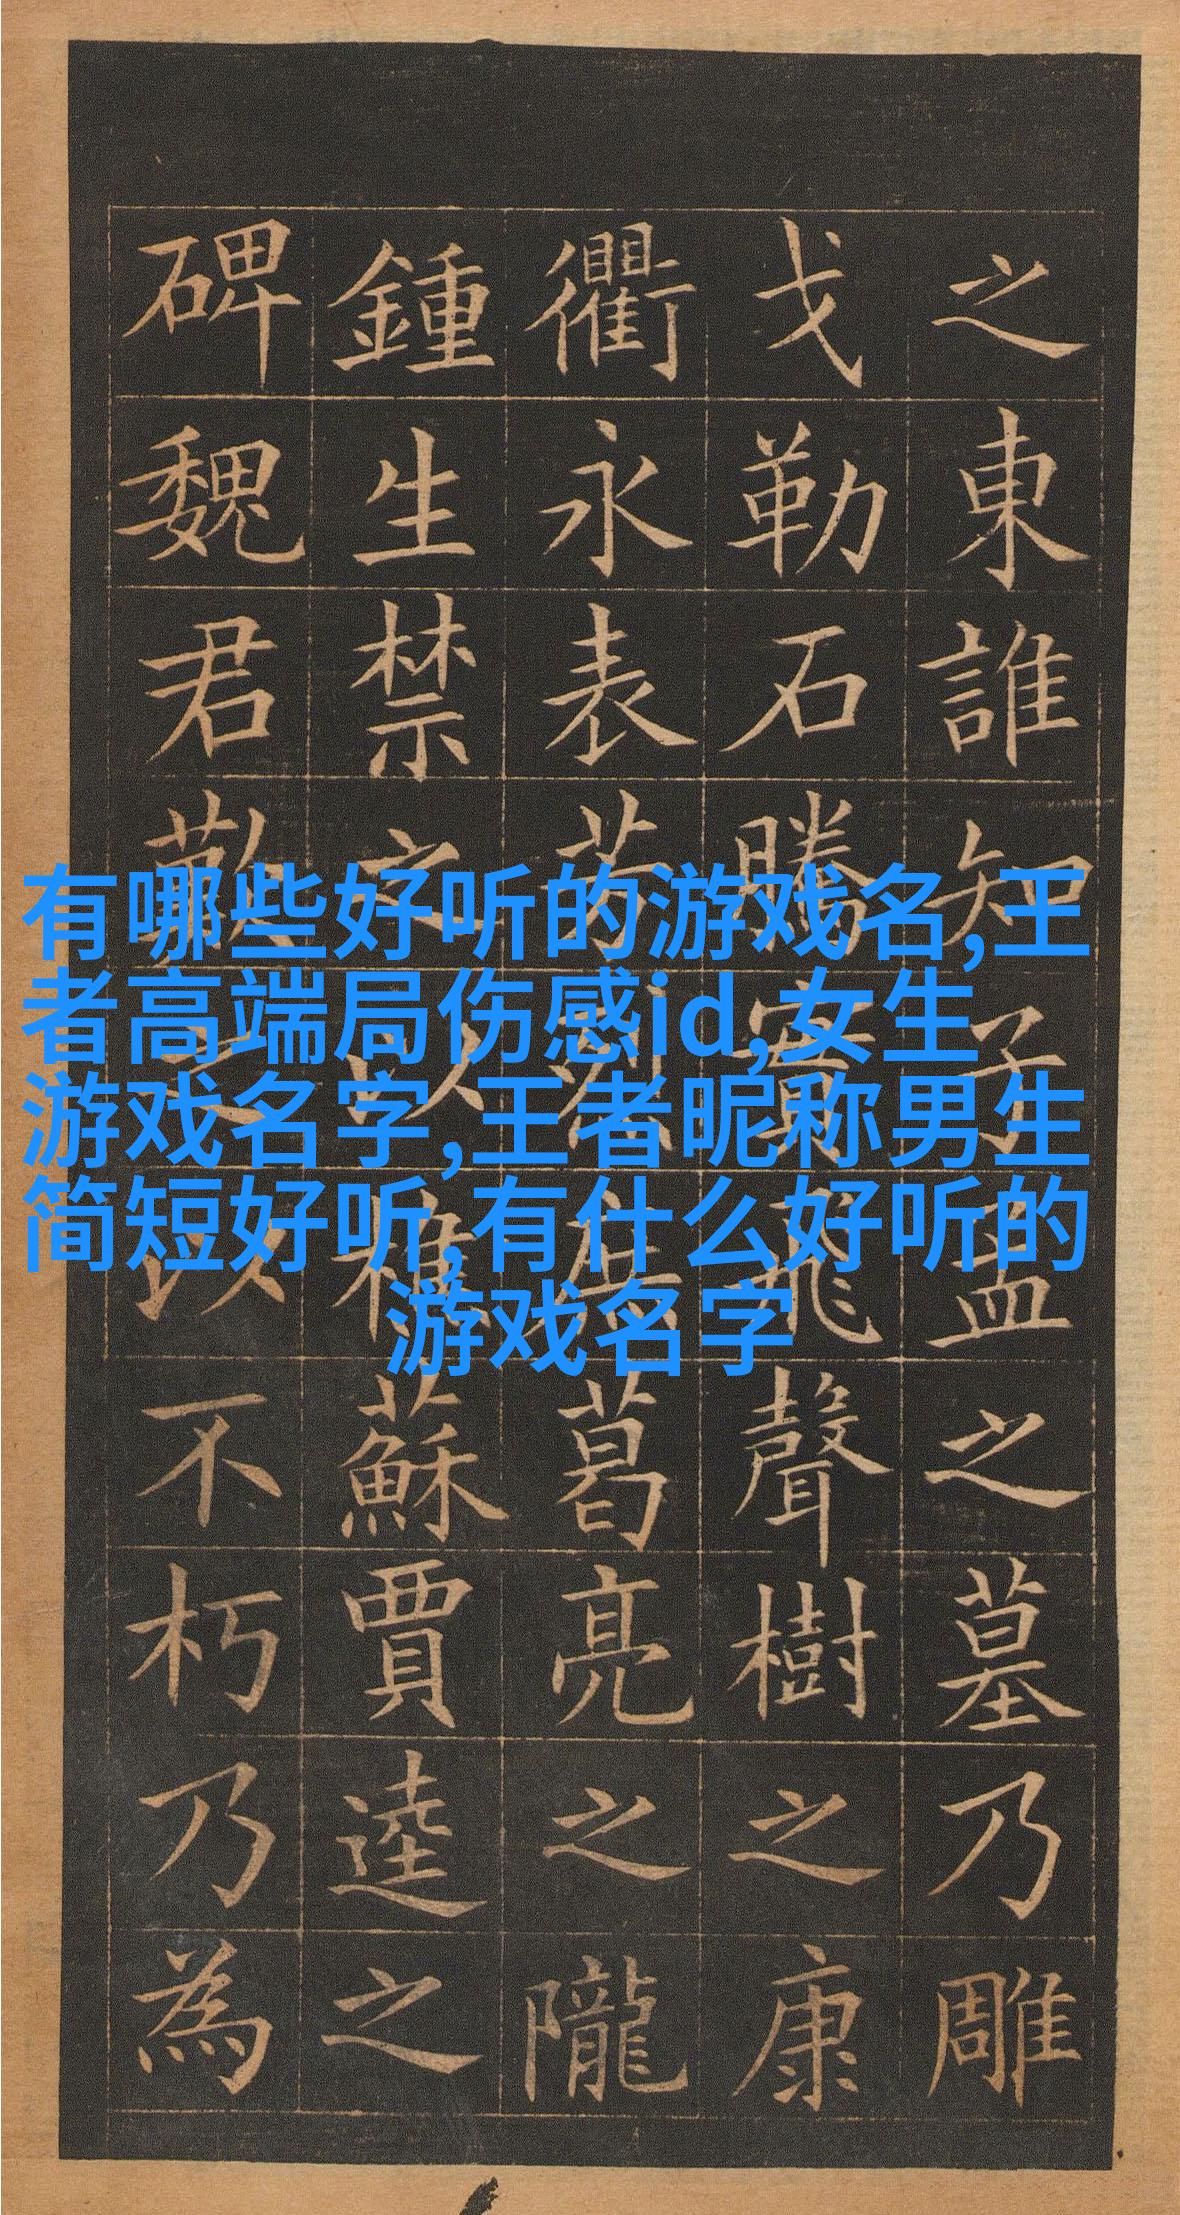 有哪些好听的游戏名,王
者高端局伤感id,女生
游戏名字,王者昵称男生
简短好听,有什么好听的
游戏名字
之東誰知子孟之墓乃雕
戈勒石騰實飛聲樹之康
衢永表芳烈無葛亮之隴
鍾生禁之以樵蘇賈逵之
碑魏君歎以不朽乃為